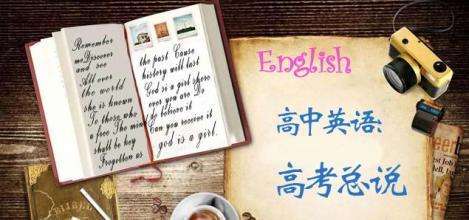 Remember
me Discover
and see
All over
the world
she is known
To those who
a free The mind
shall be key
Forgotten as
the past Cause
history will last
God is a girl
over you are Do
to believe it
Can you receive it
god is a girl.
English
高中英语:
高考总说